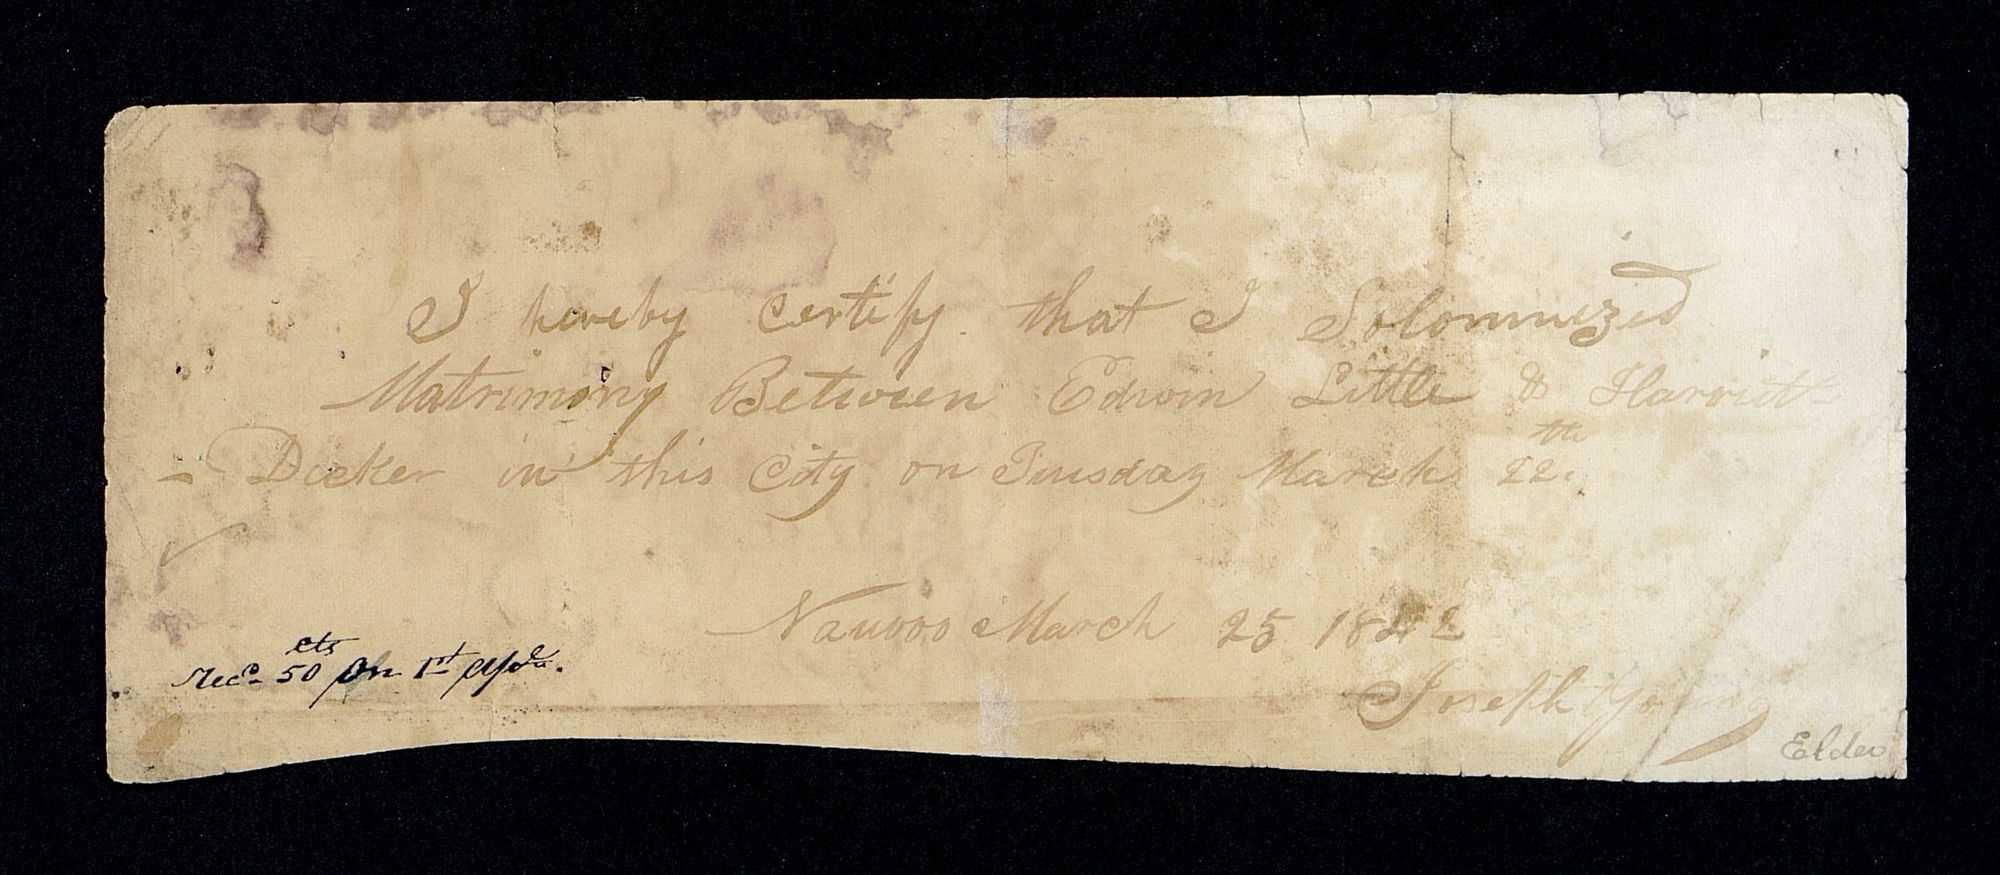 I hereby certify that I Solomnized
Matrimony Between Edwin Little & Harriet
Decker in this City on Tuesday March 22th.
Nauvoo March 25 1842
Joseph Young
Elder
Rec.d 50 cts on 1st